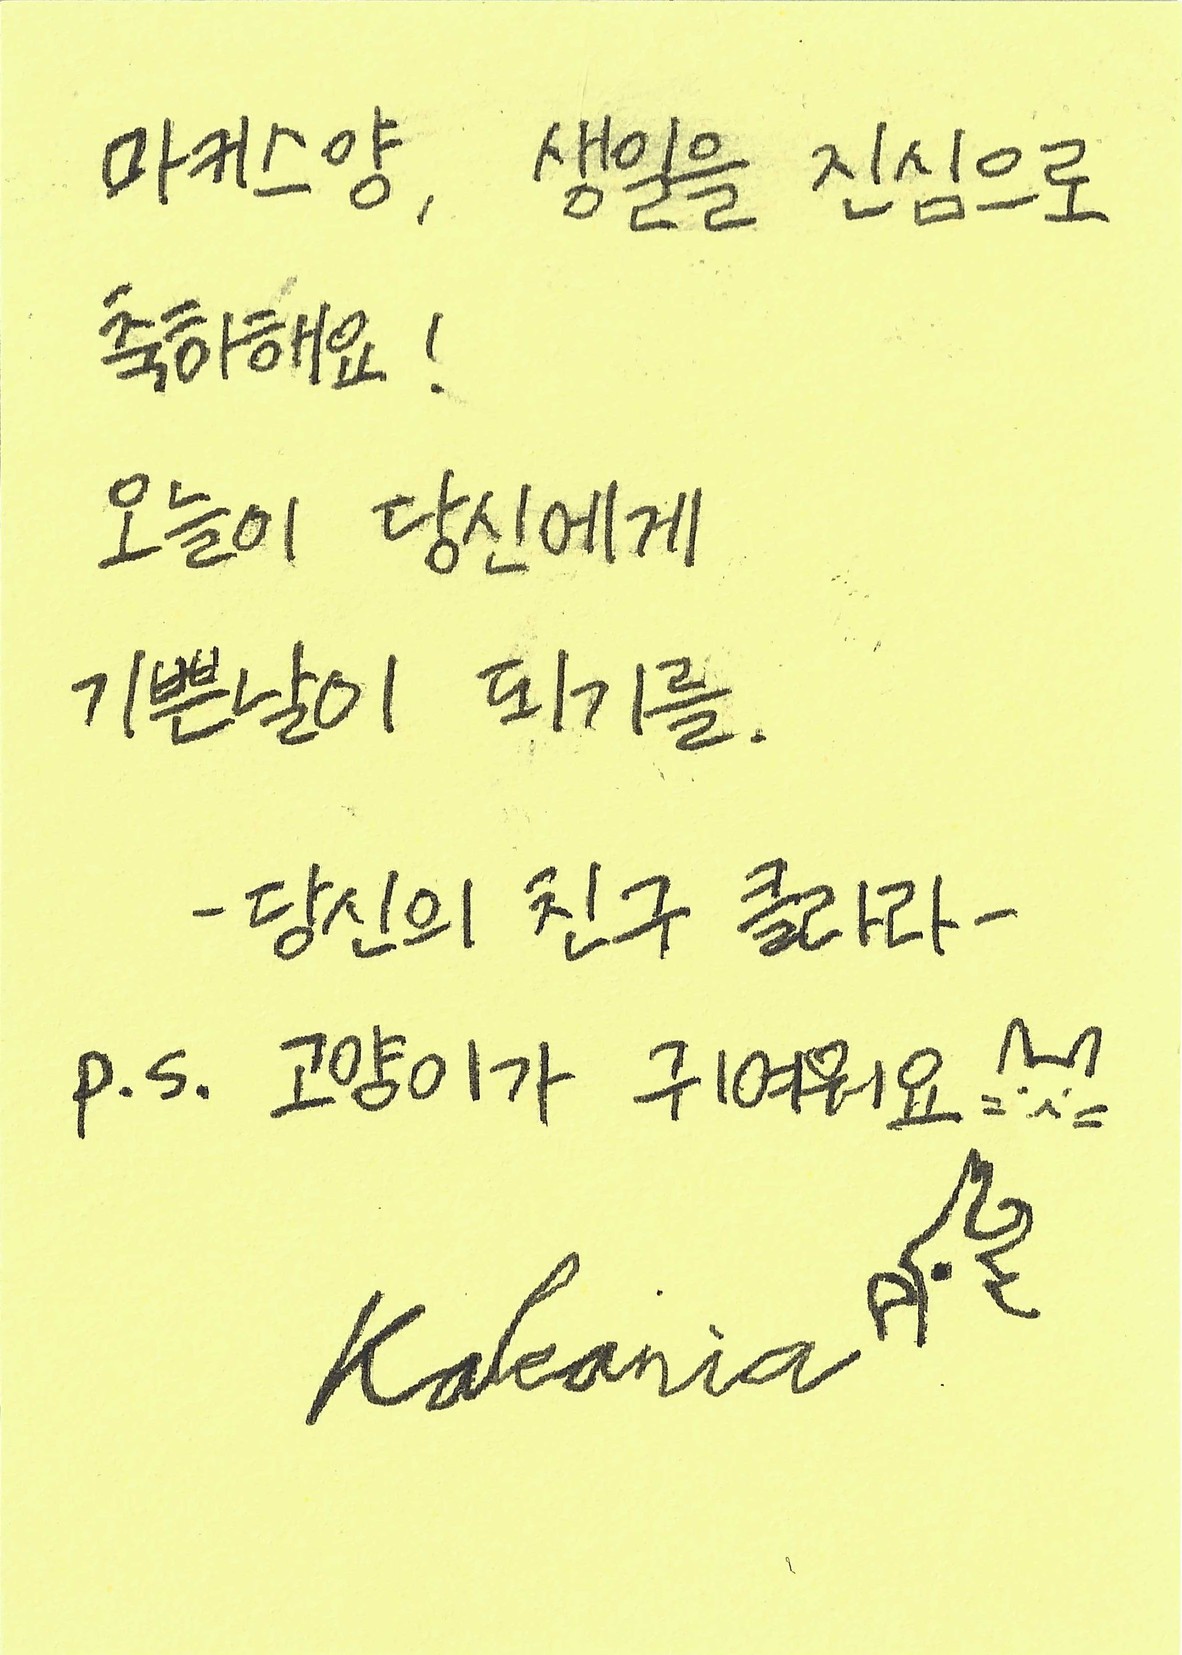 마커스양, 생일을 진심으로
축하해요!
오늘이 당신에게
기쁜날이 되기를.
-당신의 친구 클라라-
p.s. 고양이가 귀여워요
Kaleania